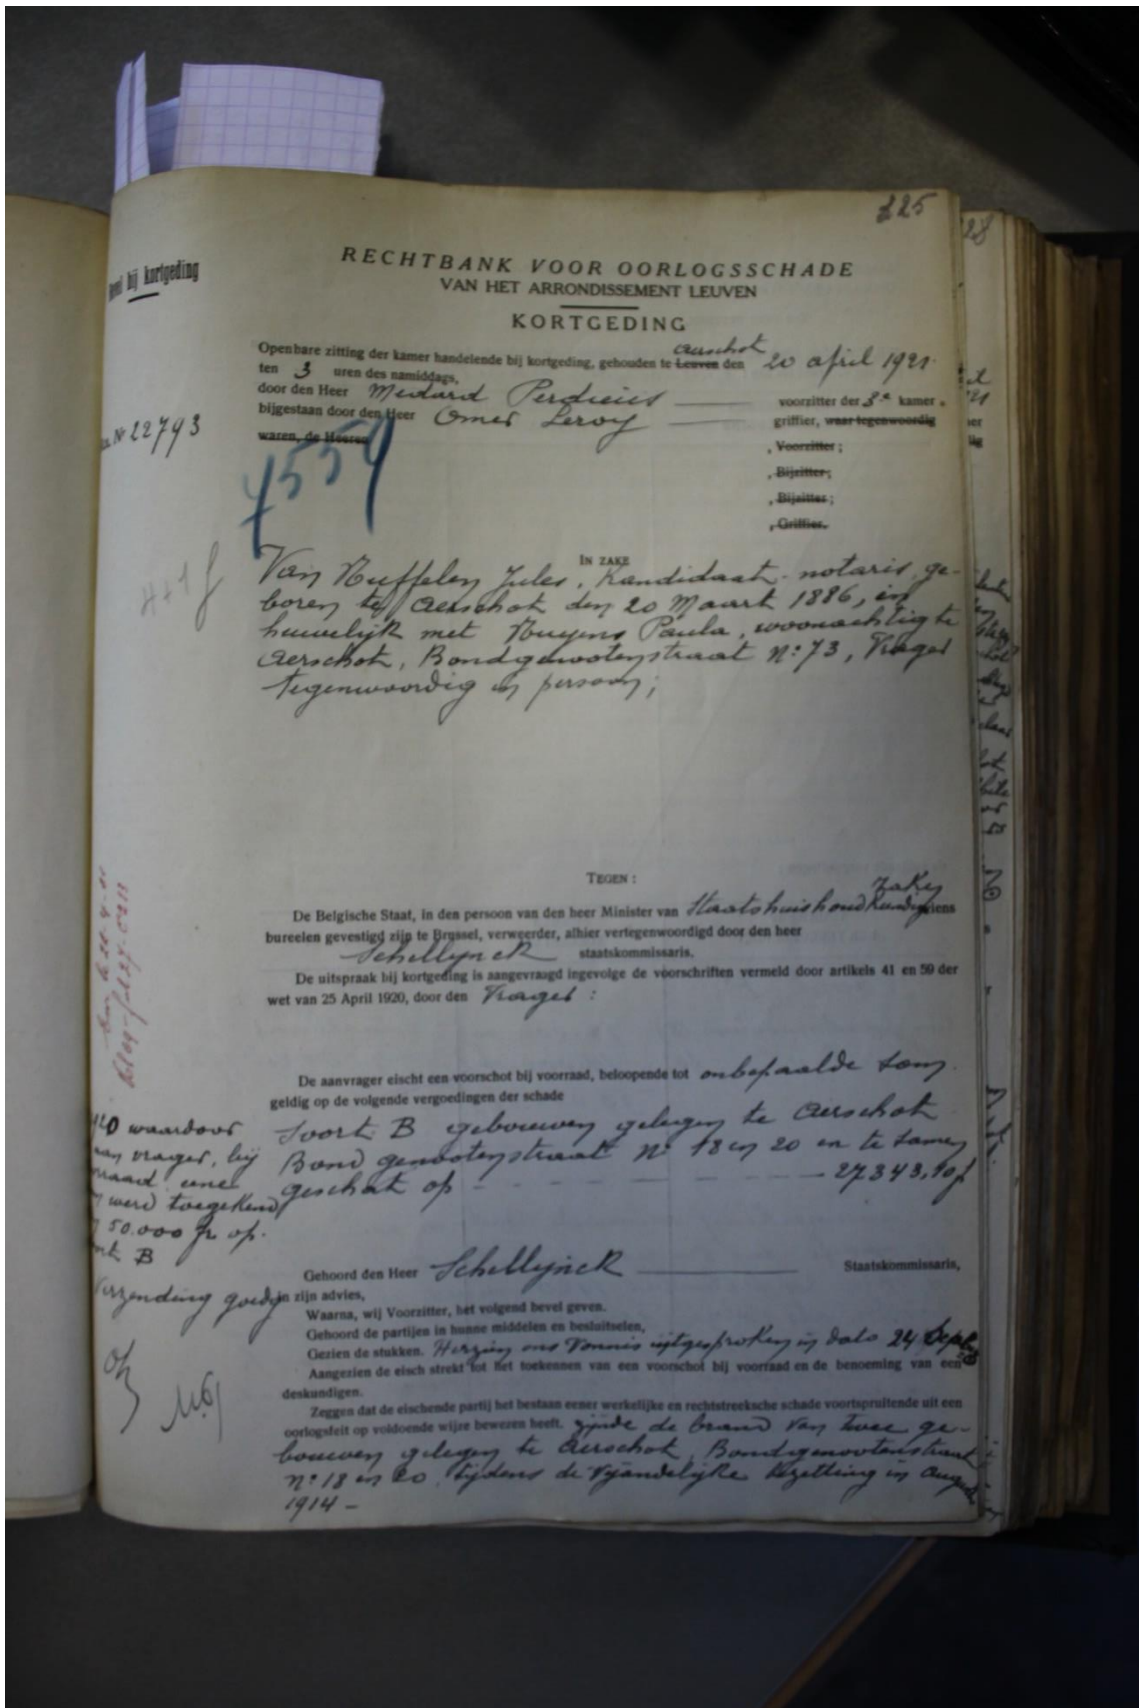 225
28
bij kortgeding
RECHTBANK VOOR OORLOGSSCHADE
VAN HET ARRONDISSEMENT LEUVEN
KORTGEDING
Openbare zitting der kamer handelende bij kortgeding, gehouden te Leuven Aerschot den 20 april 1921.
ten 3 uren des namiddags,
door den Heer Medard Perdieus voorzitter der 3e kamer,
bijgestaan door den Heer Omer Leroy griffier, waar tegenwoordig
waren, de Heeren
Nr 22793
, Voorzitter ;
, Bijzitter;
, Bijzitter ;
, Griffier.
7559
4+1 f
IN ZAKE
Van Nuffelen Jules, Kandidaat-notaris, ge-
boren te Aerschot den 20 Maart 1886, in
huwelijk met Nuyens Paula, woonachtig te
Aerschot, Bondgenootenstraat N: 73, Vrager
tegenwoordig in persoon;
TEGEN :
De Belgische Staat, in den persoon van den heer Minister van Staatshuishoudkundige zaken wiens
bureelen gevestigd zijn te Brussel, verweerder, alhier vertegenwoordigd door den heer
Schellynck staatskommissaris.
De uitspraak bij kortgeding is aangevraagd ingevolge de voorschriften vermeld door artikels 41 en 59 der
wet van 25 April 1920, door den Vrager :
De aanvrager eischt een voorschot bij voorraad, beloopende tot onbepaalde som.
geldig op de volgende vergoedingen der schade
Soort B gebouwen gelegen te Aerschot
Bondgenootenstraat No 18 en 20 en te samen
geschat op - - - - - 27343,10 f
1920 waardoor
aan vrager, bij
voorraad eene
som werd toegekend
50.000 fr op.
soort B
Verzending goedg
Gehoord den Heer Schellynck Staatskommissaris,
in zijn advies,
Waarna, wij Voorzitter, het volgend bevel geven.
Gehoord de partijen in hunne middelen en besluitselen,
Gezien de stukken. Herzien ons vonnis uitgesproken in dato 24 September
Aangezien de eisch strekt tot het toekennen van een voorschot bij voorraad en de benoeming van een
deskundigen.
Zeggen dat de eischende partij het bestaan eener werkelijke en rechtstreeksche schade voortspruitende uit een
oorlogsfeit op voldoende wijze bewezen heeft. zijnde de brand van twee ge-
bouwen gelegen te Aerschot, Bondgenootenstraat
N: 18 en 20, tijdens de vijandelijke bezetting in Augustus
1914 -